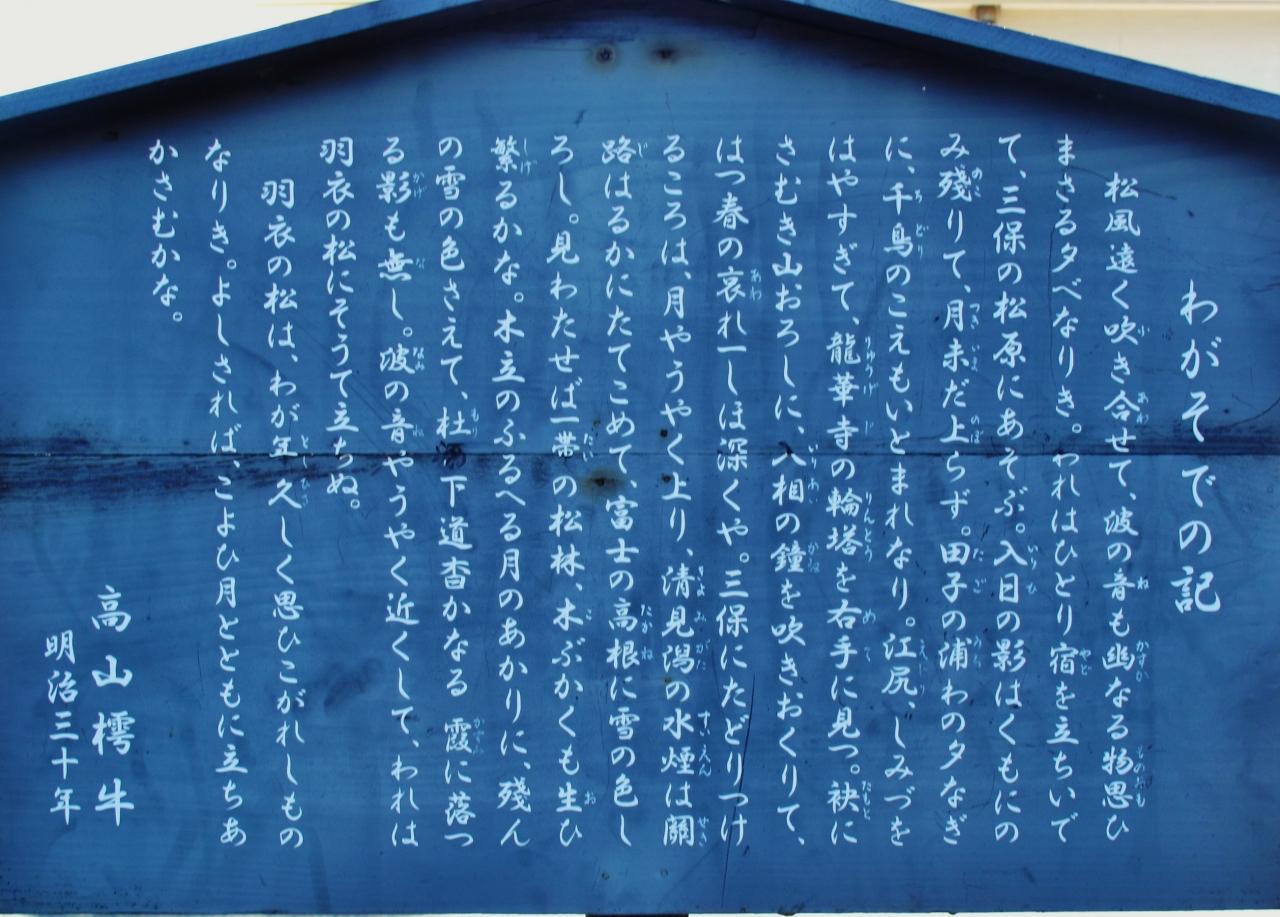 わがそでの記
松風遠く吹き合せて、波の音も幽なる物思ひ
まさる夕べなりき。われはひとり宿を立ちいで
て、三保の松原にあそぶ。入日の影はくもにの
み殘りて、月未だ上らず。田子の浦わの夕なぎ
に、千鳥のこえもいとまれなり。江尻、しみづを
はやすぎて、龍華寺の輪塔を右手に見つ。袂に
さむき山おろしに、入相の鐘を吹きおくりて、
はつ春の哀れ一しほ深くや。三保にたどりつけ
るころは、月やうやく上り、清見潟の水煙は關
路はるかにたてこめて、富士の高根に雪の色し
ろし。見わたせば一帯の松林、木ぶかくも生ひ
繁るかな。木立のふるへる月のあかりに、殘ん
の雪の色さえて、杜の下道杳かなる霞に落つ
る影も無し。波の音やうやく近くして、われは
羽衣の松にそうて立ちぬ。
羽衣の松は、わが年久しく思ひこがれしもの
なりき。よしされば、こよひ月とともに立ちあ
かさむかな。
高山樗牛
明治三十年